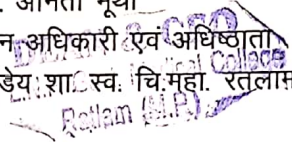 . अनिता मूथा
न अधिकारी एवं अधिष्ठाता
डेय शा. स्व. चि.महा. रतलाम
College
Ratlam (M.P.)